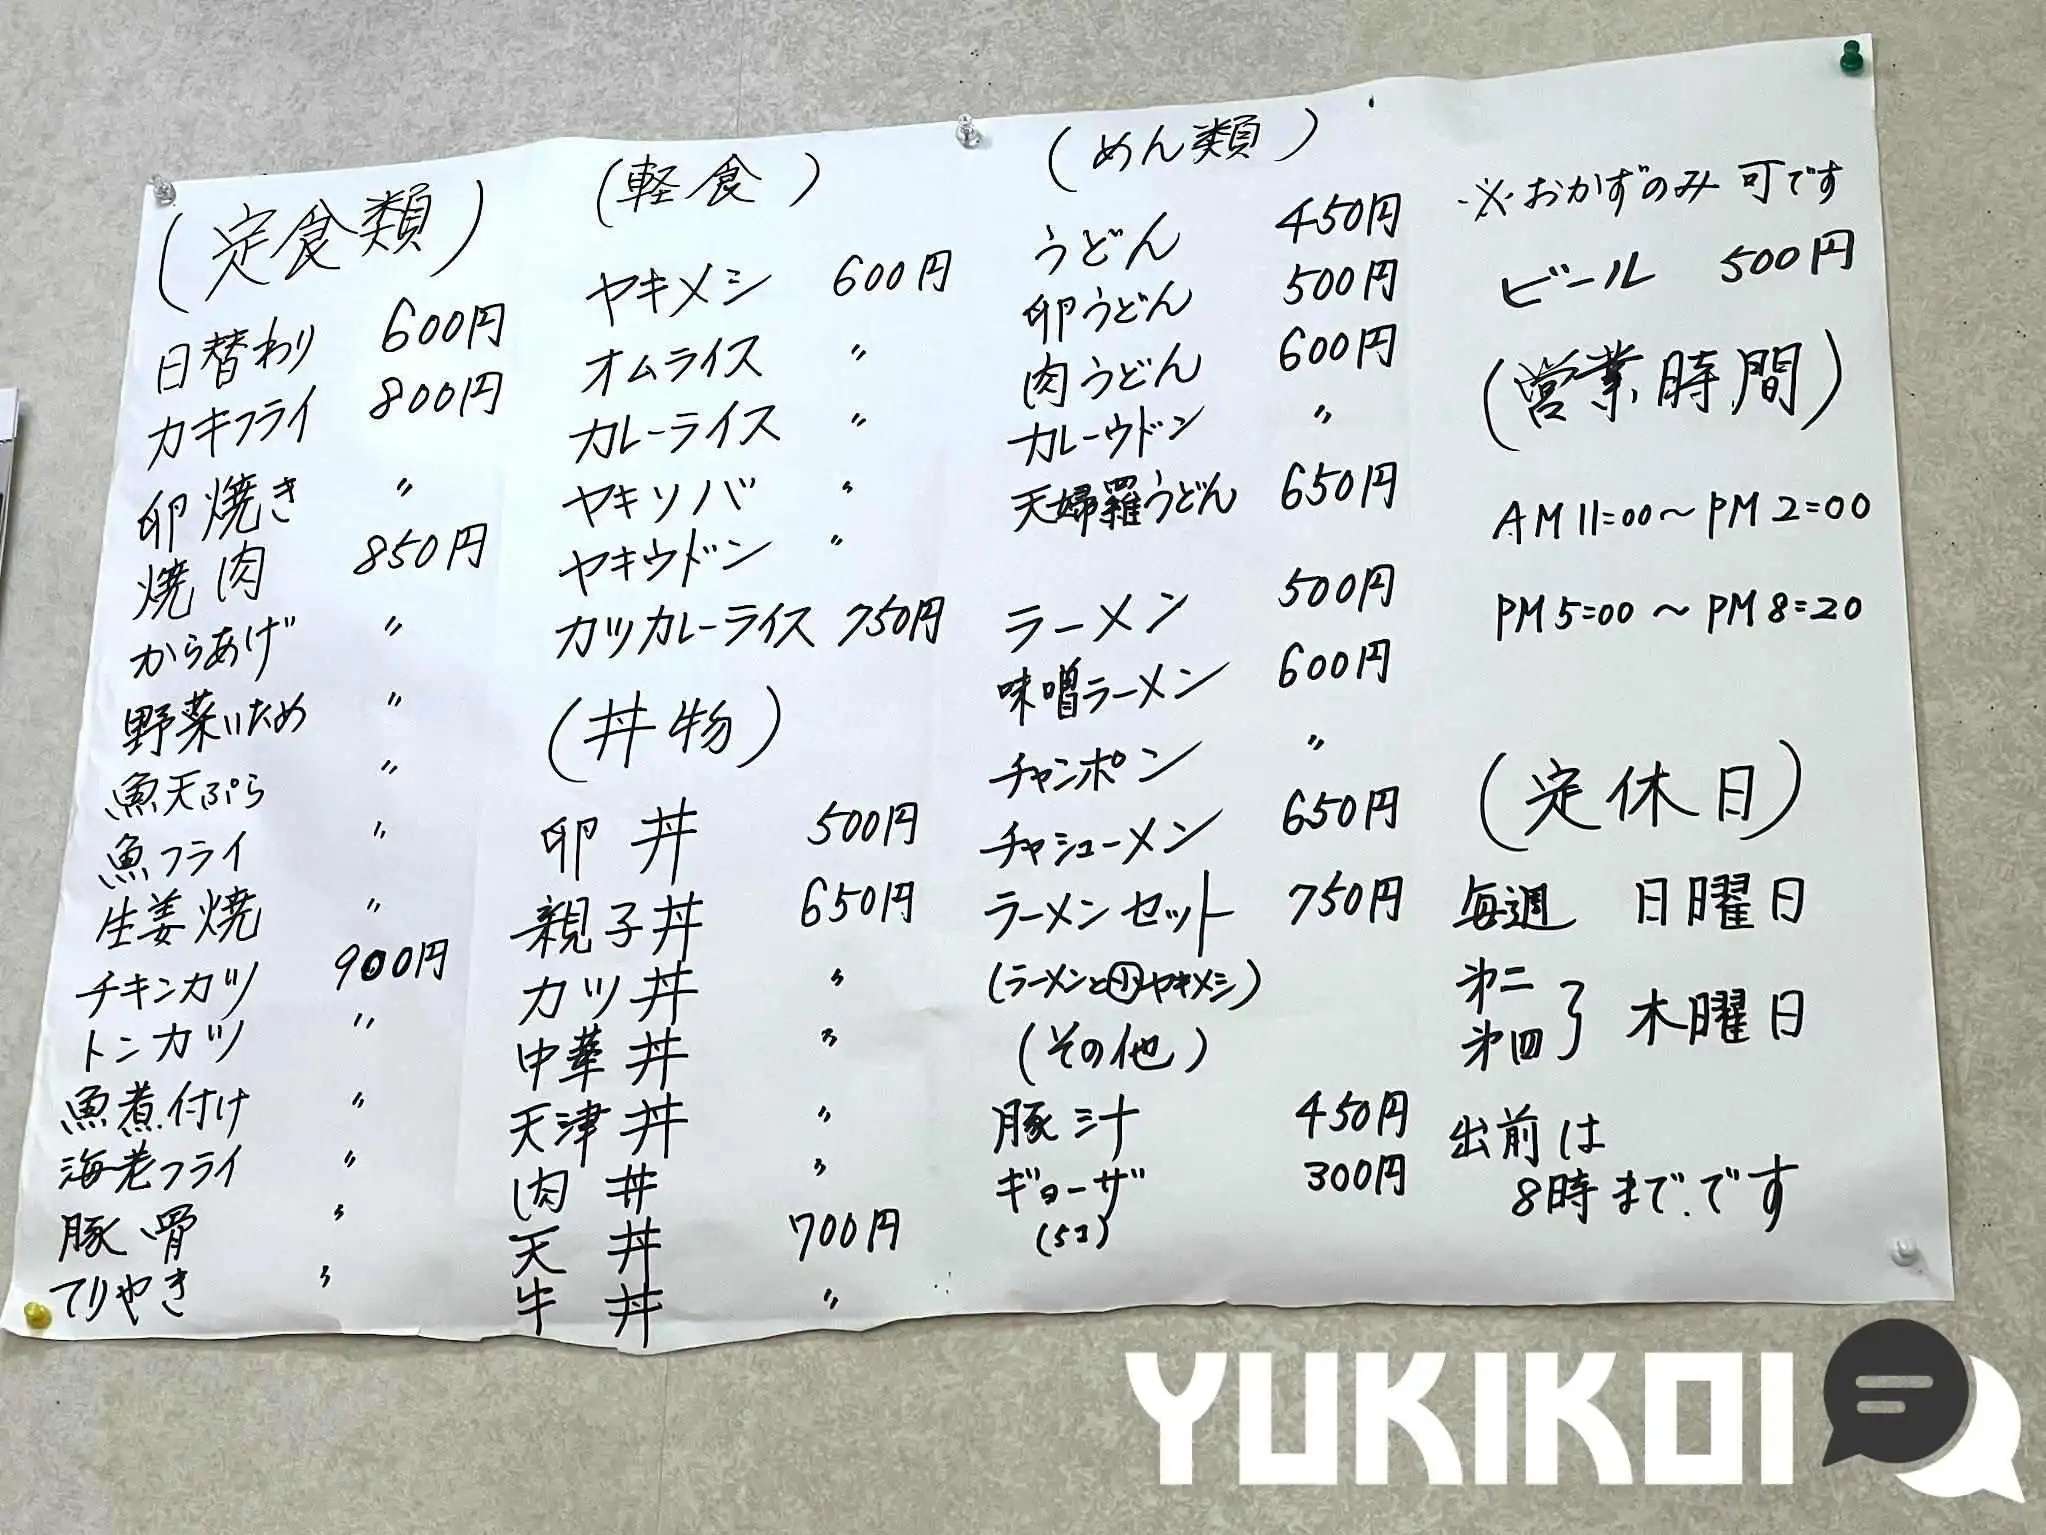 (定食類)
日替わり 600円
カキフライ 800円
卵焼き 〃
焼肉 850円
からあげ 〃
野菜いため 〃
魚天ぷら 〃
魚フライ 〃
生姜焼 〃
チキンカツ 900円
トンカツ 〃
魚煮付け 〃
海老フライ 〃
豚骨 〃
てりやき 〃
(軽食)
ヤキメシ 600円
オムライス 〃
カレーライス 〃
ヤキソバ 〃
ヤキウドン 〃
カツカレーライス 750円
(丼物)
卵丼 500円
親子丼 650円
カツ丼 〃
中華丼 〃
天津丼 〃
肉丼 〃
天丼 700円
牛丼 〃
(めん類)
うどん 450円
卵うどん 500円
肉うどん 600円
カレーウドン 〃
天婦羅うどん 650円
ラーメン 500円
味噌ラーメン 600円
チャンポン 〃
チャシューメン 650円
ラーメンセット 750円
(ラーメンと小ヤキメシ)
(その他)
豚汁 450円
ギョーザ 300円
(5コ)
※おかずのみ可です
ビール 500円
(営業時間)
AM11:00～PM2:00
PM5:00～PM8:20
(定休日)
毎週 日曜日
第二
第四 } 木曜日
出前は
8時までです
YUKIKOI